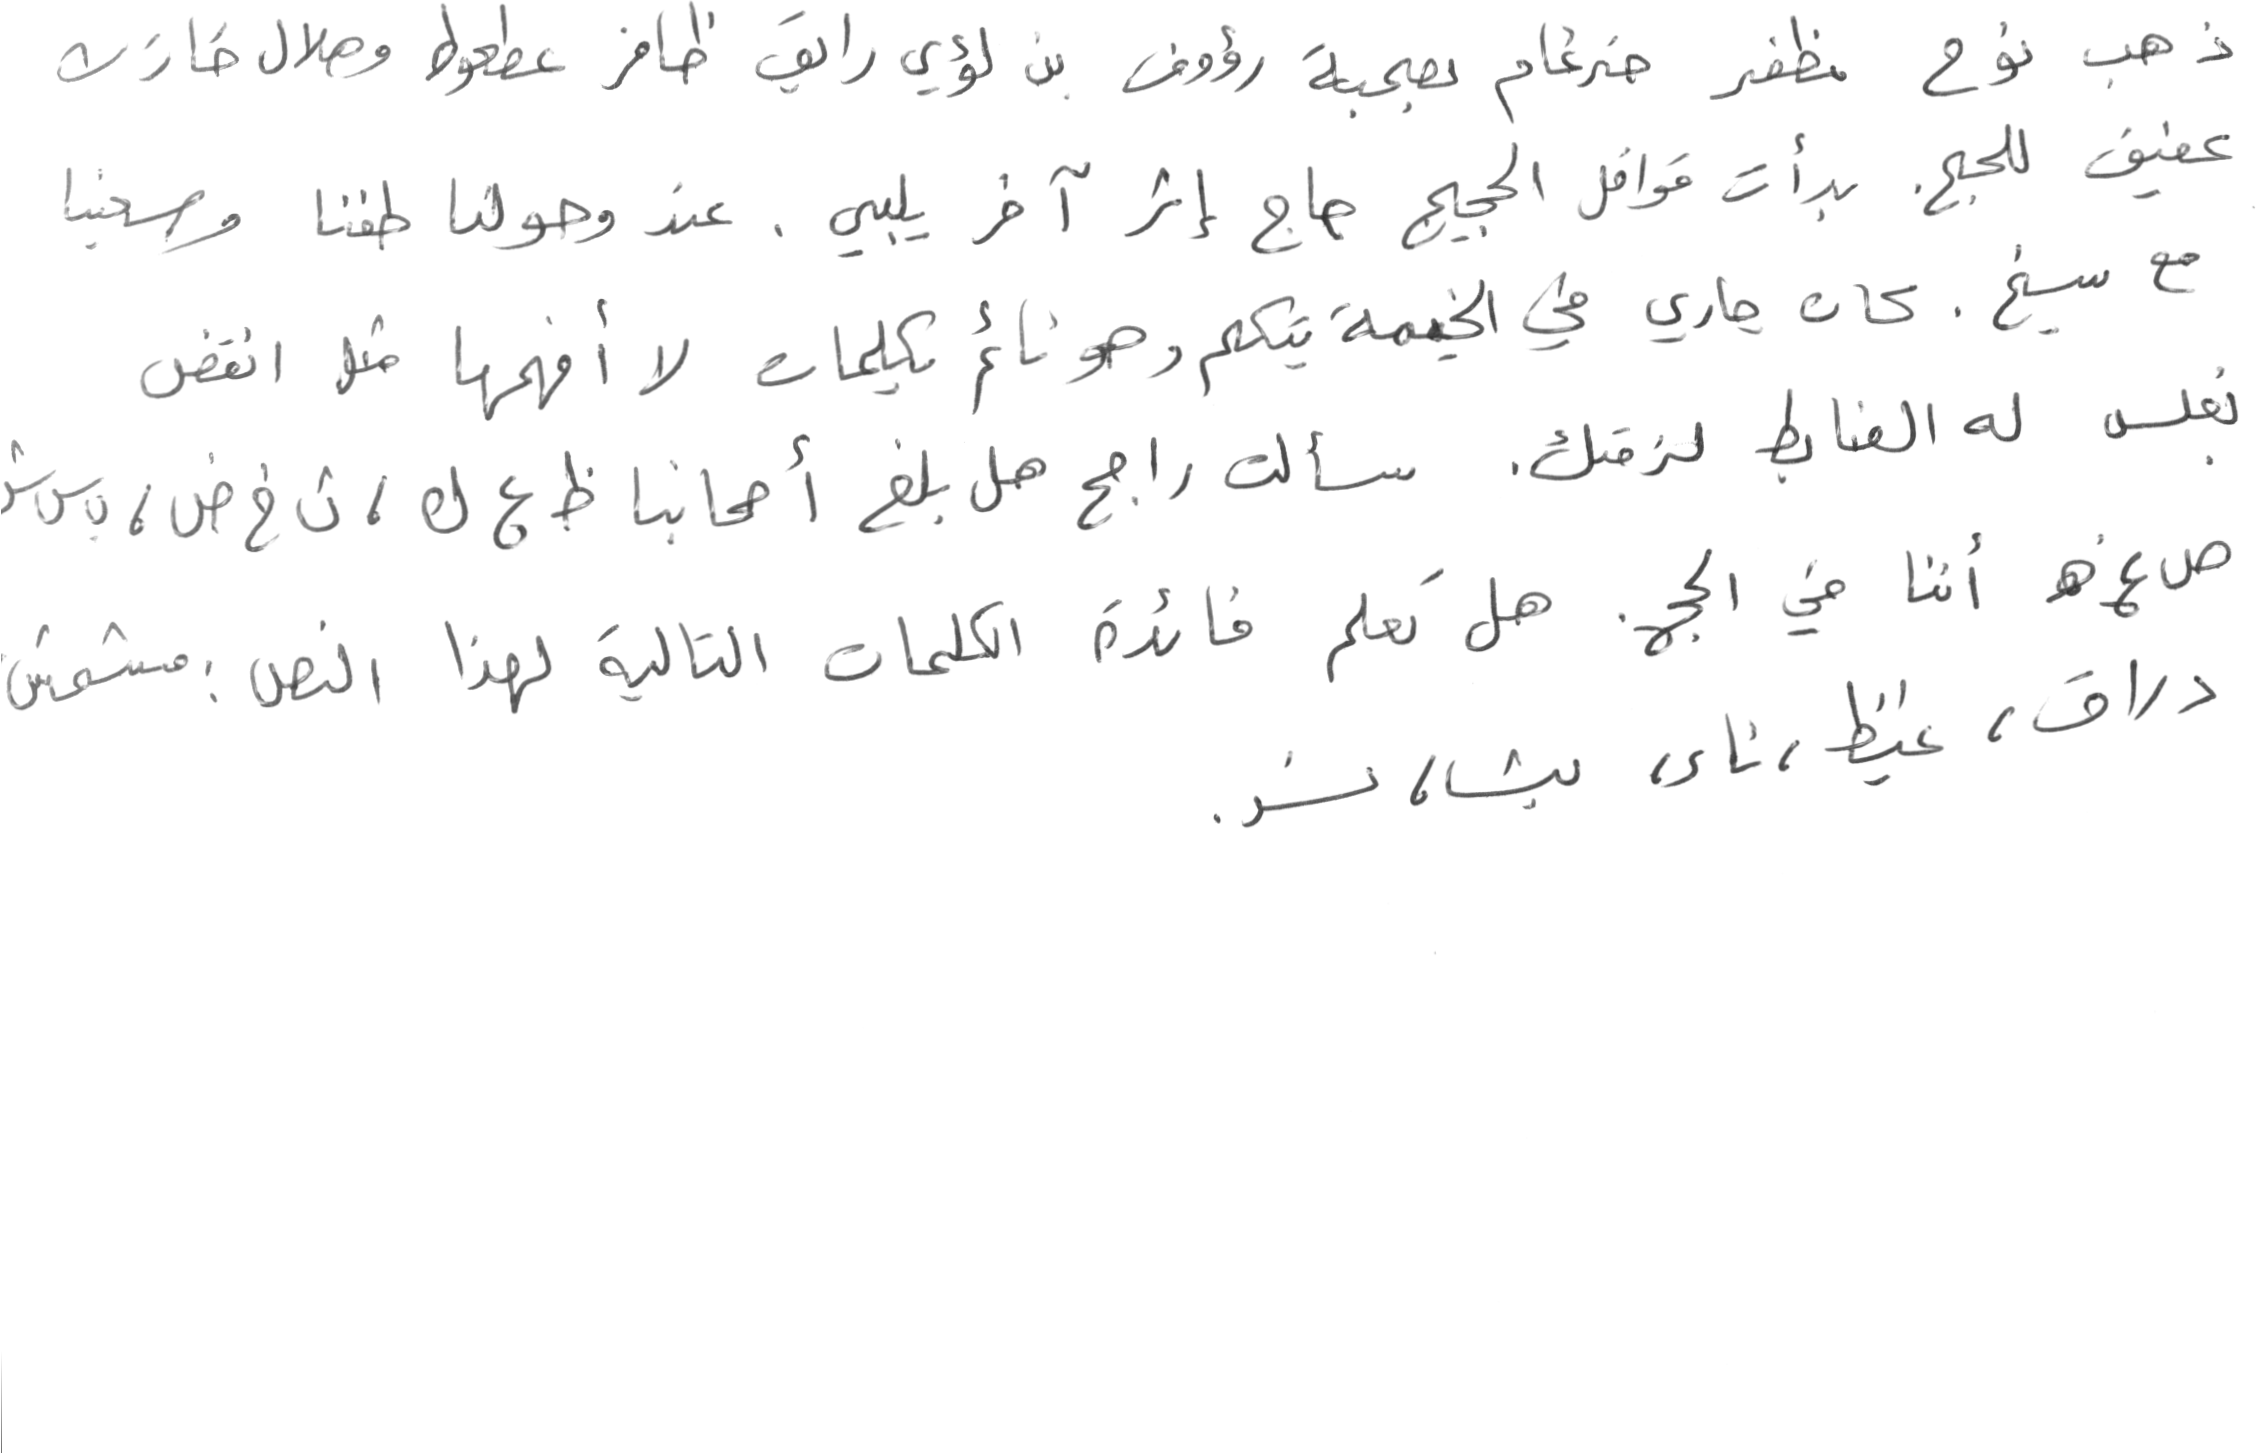 ذهب نوح مظفر ضرغام بصحبة رؤوف بن لؤي رايق ظافر عطعوط وهلال حارث
عفيف للحج. بدأت قوافل الحجيج حاج إثر آخر يلبي. عند وصولنا طفنا وسعينا
مع سيخ. كان جاري في الخيمة يتكلم وهو نائم بكلمات لا أفهمها مثل انقض
بغلس له الضابط لزقتك. سألت راجح هل بلغ أصحابنا ظ ع ك، ث خ ض، ب س ش
ص غ ه أننا في الحج. هل تعلم فائدة الكلمات التالية لهذا النص: مشمش
دراق، غيظ، ناي، بيشا، نسر.